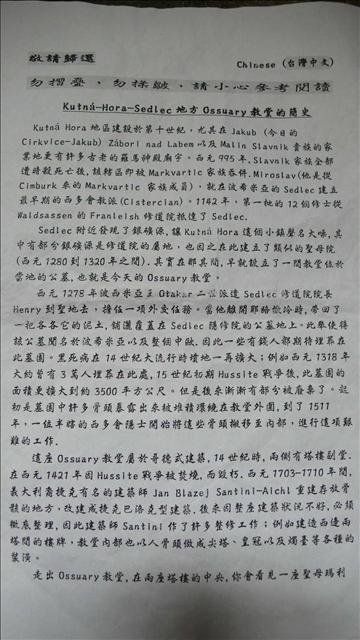 敬請歸還
Chinese (台灣中文)
勿摺登,勿揉皺,請小心參考閱讀
Kutná-Hora-Sedlec 地方 Ossuary 教堂的簡史
Kutná Hora 地區建設於第十世紀,尤其在 Jakub (今日的
Církvice-Jakub) Zábori nad Labem 以及 Malin Slavnik 貴族的家
業地更有許多古老的羅馬神殿廟宇。西元 995 年,Slavnik 家族全部
遭暗殺死亡後,該轄區即被 Markvartic 家族吞併,Miroslav(他是從
Cimburk 來的 Markvartic 家族成員),就在波希米亞的 Sedlec 建立
最早期的西多會教區(Cistercian)。1142 年,第一批的 12 個修士從
Waldsassen 的 Franleish 修道院抵達了 Sedlec.
Sedlec 附近發現了銀礦源,讓 Kutná Hora 這個小鎮聲名大噪,其
中有部分銀礦源是修道院的屬地,也因之在此建立了類似的聖母院
(西元 1280 到 1320 年之間).其實在那其間,早就設立了一間教堂位於
當地的公墓,也就是今天的 Ossuary 教堂。
西元 1278 年波西米亞王 Otakar 二世派遣 Sedlec 修道院院長
Henry 到聖地去,擔任一項外交任務。當他離開耶路撒冷時,帶回了
一把各各它的泥土,鋪灑覆蓋在 Sedlec 隱修院的公墓地上。此舉使得
該公墓聞名於波希米亞以及整個中歐,因此一些有錢人都期待埋葬在
此墓園。黑死病在 14 世紀大流行時墳地一再擴大;例如西元 1318 年
大約皆有 3 萬人埋葬在此處,15 世紀初期 Hussite 戰爭後,此墓園的
面積更擴大到約 3500 平方公尺。但是後來漸漸有部分被廢棄了。起
初是墓園中許多骨頭暴露出來被堆積環繞在教堂外圍,到了 1511
年,一位半瞎的西多會隱士開始將這些骨頭搬移至內部,進行這項艱
難的工作.
這座 Ossuary 教堂屬於哥德式建築,14 世紀時,兩側有塔樓副堂.
在西元 1421 年因 Hussite 戰爭被焚燒,而毀朽.西元 1703-1710 年間,
義大利裔捷克有名的建築師 Jan Blazej Santini-Aichl 重建存放骨
骸的地方,改建成捷克巴洛克型建築,後來因整座建築狀況不好,必須
徹底整理,因此建築師 Santini 作了許多整修工作;例如建造西邊兩
塔間的樓牌,教堂內部也以人骨頭做成尖塔、皇冠以及燭臺等各種的
裝潢。
走出 Ossuary 教堂,在兩座塔樓的中央,你會看見一座聖母瑪利